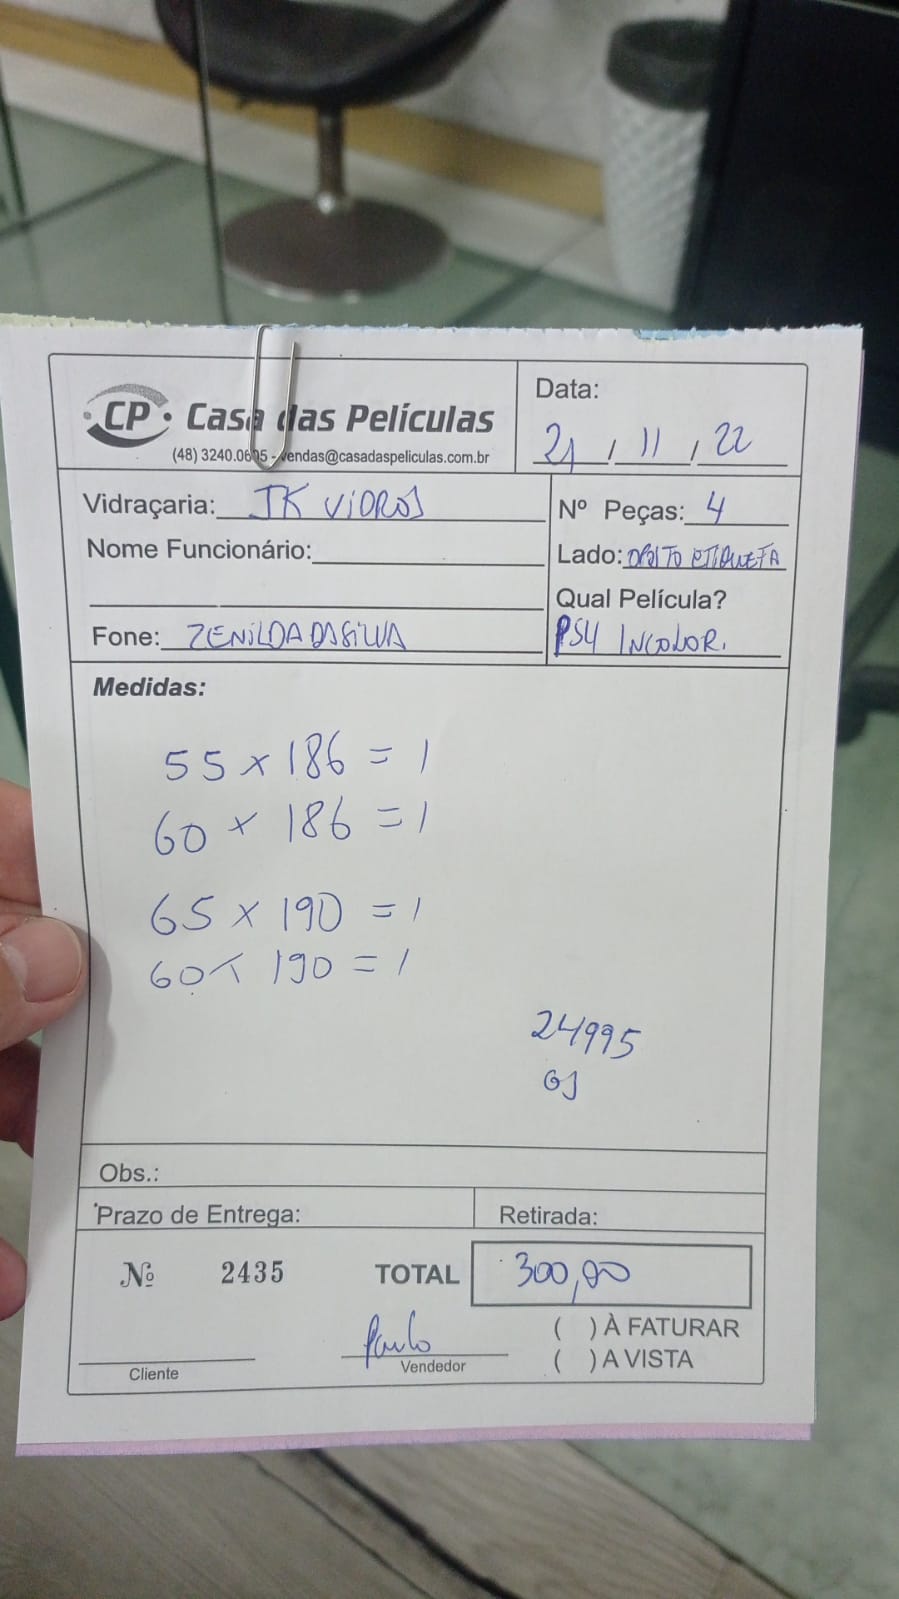 CP Casa das Películas
(48) 3240.0605 - vendas@casadaspeliculas.com.br
Data:
21 / 11 / 22
Vidraçaria: JK VIDROS
Nº Peças: 4
Nome Funcionário:
Lado: OPOSTO ETIQUETA
Qual Película?
Fone: ZENILDA DA SILVA
PS4 INCOLOR.
Medidas:
55 x 186 = 1
60 x 186 = 1
65 x 190 = 1
60 x 190 = 1
24995
Obs.:
Prazo de Entrega:
Retirada:
Nº 2435
TOTAL 300,00
Paulo
( ) À FATURAR
Cliente
Vendedor
( ) A VISTA